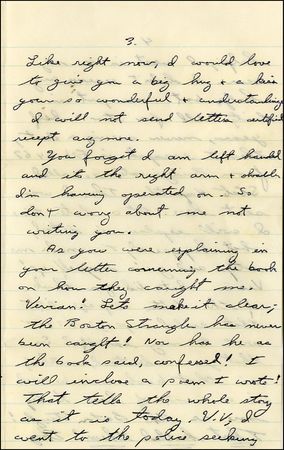 3.
Like right now, I would love
to give you a big hug + a kiss
your so wonderful + understanding
I will not send letters certified
recept any more.
You forgot I am left handed
and it's the right arm + shoulder
I'm having operated on. So
don't worry about me not
writing you.
As you were explaining in
your letter concerning the book
on how they caught me.
Vivian! Lets make it clear;
the Boston Strangler has never
been caught! Nor has he as
the book said, confessed! I
will inclose a poem I wrote!
That tells the whole story
as it is today. V.V, I
went to the police seeking